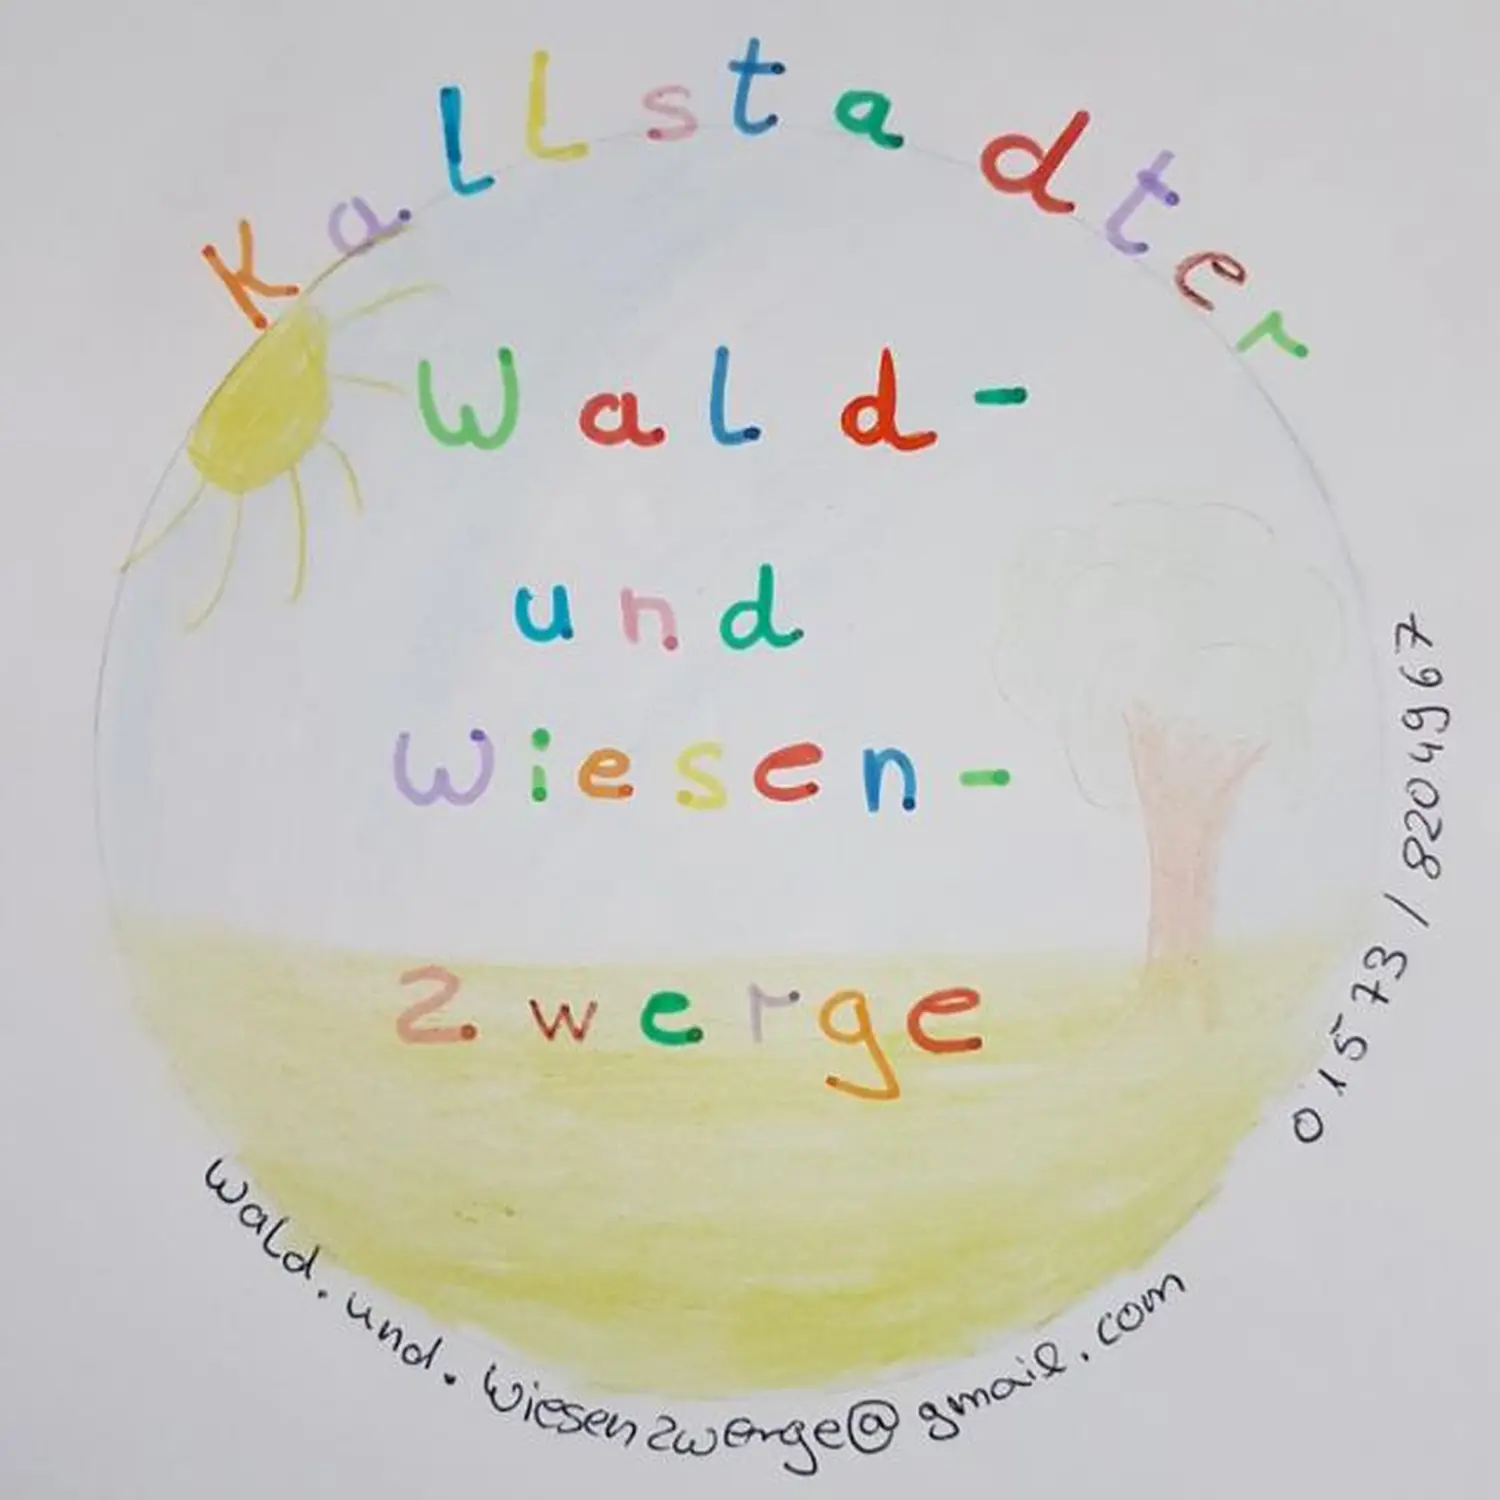 Kallstadter
Wald-
und
Wiesen-
Zwerge
01573/8204967
wald.und.wiesenzwerge@gmail.com